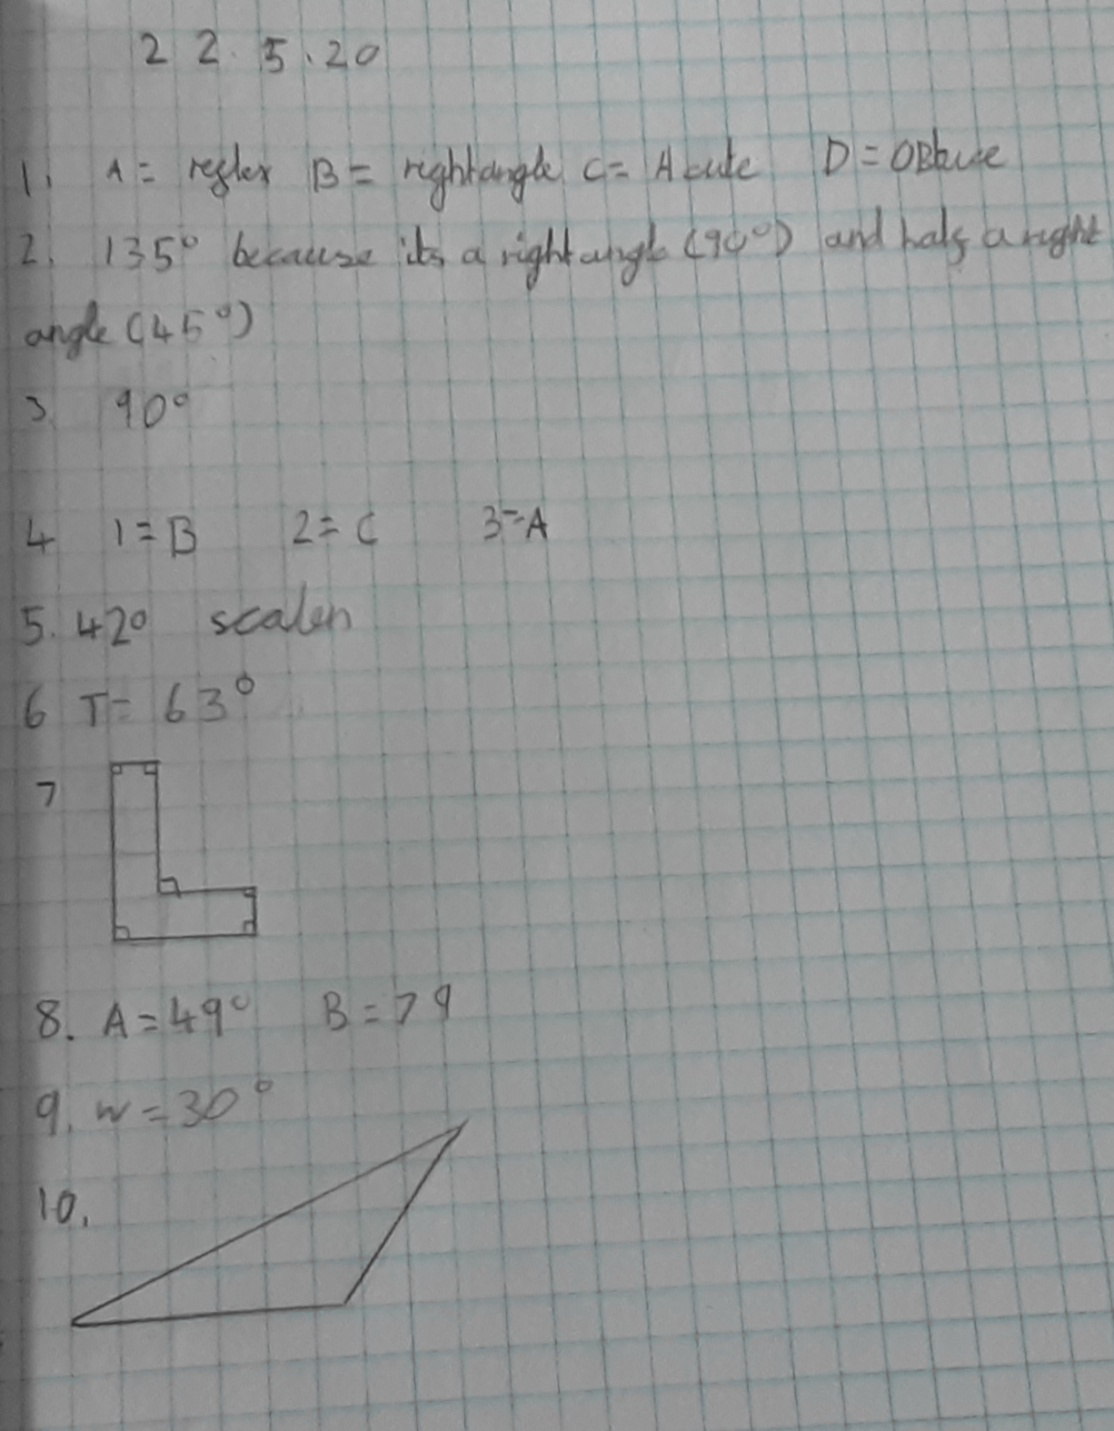 22.5.20
1. A= reflex B= rightangle C= Acute D=OBtuse
2. 135° because its a right angle (90°) and half a right
angle (45°)
3. 90°
4 1=B 2=C 3=A
5. 42° scalen
6 T= 63°
7
8. A=49° B=79
9. w=30°
10.